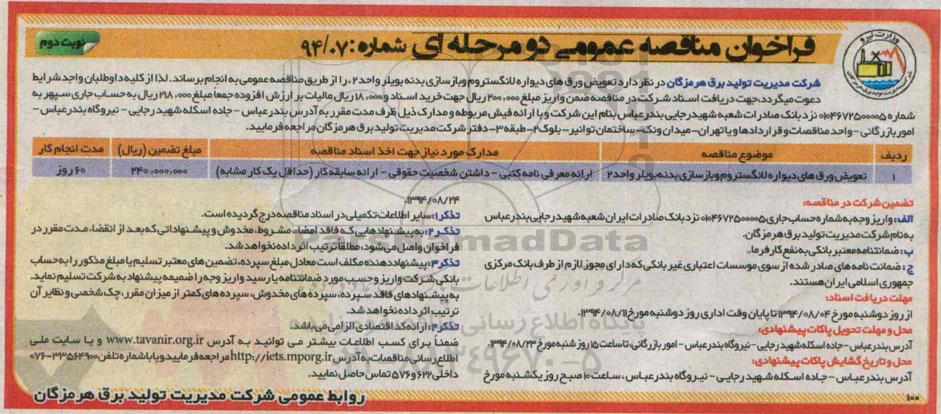 وزارت نیرو
فراخوان مناقصه عمومی دو مرحله ای شماره: ۹۴/۰۷
نوبت دوم
شرکت مدیریت تولید برق هرمزگان در نظر دارد تعویض ورق های دیواره لانگستروم و بازسازی بدنه بویلر واحد ۲، را از طریق مناقصه عمومی به انجام برساند. لذا از کلیه داوطلبان واجد شرایط
دعوت میگردد، جهت دریافت اسناد شرکت در مناقصه ضمن واریز مبلغ ۲۰۰,۰۰۰ ریال جهت خرید اسناد و ۱۸,۰۰۰ ریال مالیات بر ارزش افزوده جمعا مبلغ ۲۱۸,۰۰۰ ریال به حساب جاری سپهر به
شماره ۰۱۰۴۶۷۲۵۰۰۰۰۵ نزد بانک صادرات شعبه شهید رجایی بندرعباس بنام این شرکت و با ارائه فیش مربوطه و مدارک ذیل ظرف مدت مقرر به آدرس بندرعباس - جاده اسکله شهید رجایی - نیروگاه بندرعباس -
امور بازرگانی - واحد مناقصات و قراردادها و یا تهران - میدان ونک - ساختمان توانیر - بلوک ۲ - طبقه ۳ - دفتر شرکت مدیریت تولید برق هرمزگان مراجعه فرمایید.
ردیف موضوع مناقصه مدارک مورد نیاز جهت اخذ اسناد مناقصه مبلغ تضمین (ریال) مدت انجام کار
۱ تعویض ورق های دیواره لانگستروم و بازسازی بدنه بویلر واحد ۲ ارائه معرفی نامه کتبی - داشتن شخصیت حقوقی - ارائه سابقه کار (حداقل یک کار مشابه) ۲۴۰,۰۰۰,۰۰۰ ۶۰ روز
تضمین شرکت در مناقصه:
الف: واریز وجه به شماره حساب جاری ۰۱۰۴۶۷۲۵۰۰۰۰۵ نزد بانک صادرات ایران شعبه شهید رجایی بندرعباس
به نام شرکت مدیریت تولید برق هرمزگان.
ب: ضمانتنامه معتبر بانکی به نفع کارفرما.
ج: ضمانت نامه های صادر شده از سوی موسسات اعتباری غیر بانکی که دارای مجوز لازم از طرف بانک مرکزی
جمهوری اسلامی ایران هستند.
مهلت دریافت اسناد:
از روز دوشنبه مورخ ۱۳۹۴/۰۸/۰۴ تا پایان وقت اداری روز دوشنبه مورخ ۱۳۹۴/۰۸/۱۱
محل و مهلت تحویل پاکات پیشنهادی:
آدرس بندرعباس - جاده اسکله شهید رجایی - نیروگاه بندرعباس - امور بازرگانی، تا ساعت ۱۵ روز شنبه مورخ ۱۳۹۴/۰۸/۲۳
محل و تاریخ گشایش پاکات پیشنهادی:
آدرس بندرعباس - جاده اسکله شهید رجایی - نیروگاه بندرعباس، ساعت ۱۰ صبح روز یکشنبه مورخ
۱۳۹۴/۰۸/۲۴.
تذکر ۱: سایر اطلاعات تکمیلی در اسناد مناقصه درج گردیده است.
تذکر ۲: به پیشنهادهایی که فاقد امضاء، مشروط، مخدوش و پیشنهاداتی که بعد از انقضاء مدت مقرر در
فراخوان واصل می شود، مطلقا ترتیب اثر داده نخواهد شد.
تذکر ۳: پیشنهاد دهنده مکلف است معادل مبلغ سپرده، تضمین های معتبر تسلیم یا مبلغ مذکور را به حساب
بانکی شرکت واریز و حسب مورد ضمانتنامه یا رسید واریز وجه را ضمیمه پیشنهاد به شرکت تسلیم نماید.
به پیشنهادهای فاقد سپرده، سپرده های مخدوش، سپرده های کمتر از میزان مقرر، چک شخصی و نظایر آن
ترتیب اثر داده نخواهد شد.
تذکر ۴: ارائه کد اقتصادی الزامی می باشد.
ضمنا برای کسب اطلاعات بیشتر می توانید به آدرس www.tavanir.org.ir و یا سایت ملی
اطلاع رسانی مناقصات به آدرس http://iets.mporg.ir مراجعه فرمایید و یا با شماره تلفن ۳۳۵۶۴۹۰۰-۰۷۶
داخلی ۶۲۲ و ۵۷۶ تماس حاصل نمایید.
روابط عمومی شرکت مدیریت تولید برق هرمزگان
۱۰۰